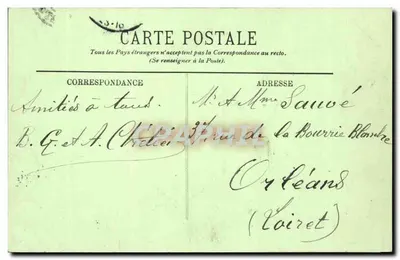 CARTE POSTALE
Tous les Pays étrangers n'acceptent pas la Correspondance au recto.
(Se renseigner à la Poste).
CORRESPONDANCE
ADRESSE
Amitiés à tous.
B. G. et A.
M. & Mme Sauvé
37 rue de la Bourrie Blanche
Orléans
(Loiret)